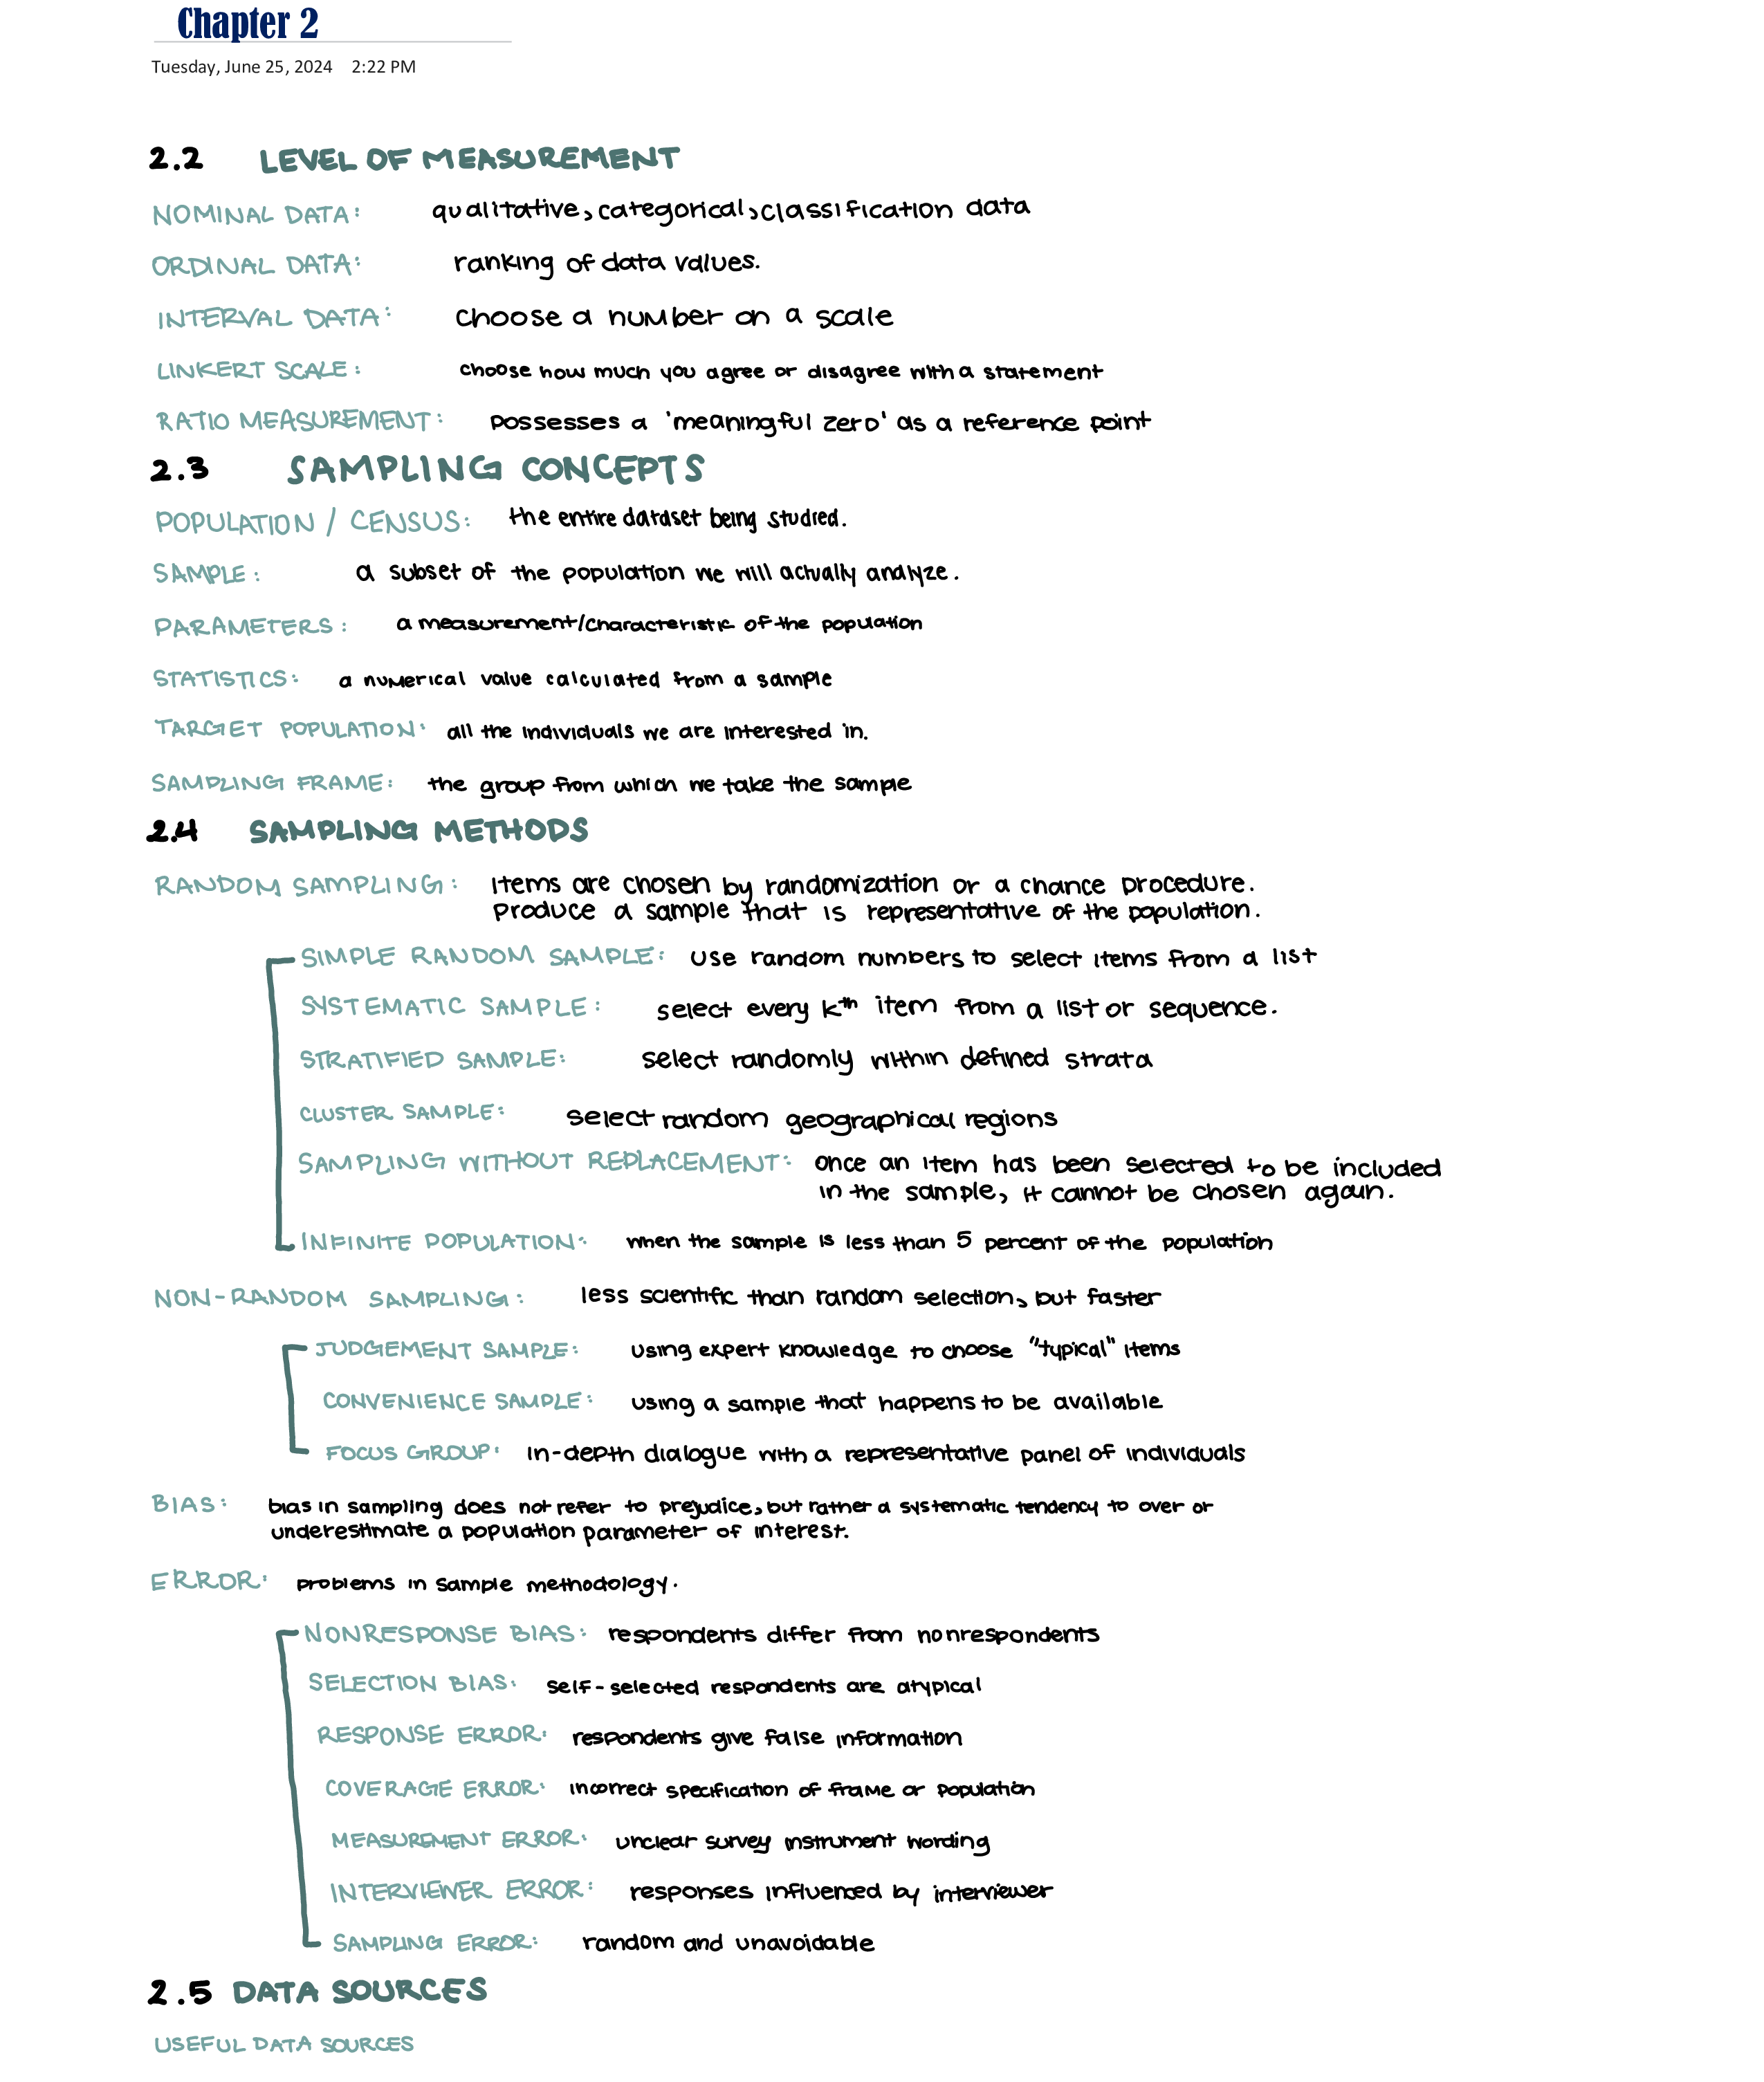 Chapter 2
Tuesday, June 25, 2024 2:22 PM
2.2 LEVEL OF MEASUREMENT
NOMINAL DATA: qualitative, categorical, classification data
ORDINAL DATA: ranking of data values.
INTERVAL DATA: choose a number on a scale
LINKERT SCALE: choose how much you agree or disagree with a statement
RATIO MEASUREMENT: possesses a 'meaningful zero' as a reference point
2.3 SAMPLING CONCEPTS
POPULATION / CENSUS: the entire dataset being studied.
SAMPLE: a subset of the population we will actually analyze.
PARAMETERS: a measurement/characteristic of the population
STATISTICS: a numerical value calculated from a sample
TARGET POPULATION: all the individuals we are interested in.
SAMPLING FRAME: the group from which we take the sample
2.4 SAMPLING METHODS
RANDOM SAMPLING: items are chosen by randomization or a chance procedure.
produce a sample that is representative of the population.
SIMPLE RANDOM SAMPLE: use random numbers to select items from a list
SYSTEMATIC SAMPLE: select every kth item from a list or sequence.
STRATIFIED SAMPLE: select randomly within defined strata
CLUSTER SAMPLE: select random geographical regions
SAMPLING WITHOUT REPLACEMENT: once an item has been selected to be included
in the sample, it cannot be chosen again.
INFINITE POPULATION: when the sample is less than 5 percent of the population
NON-RANDOM SAMPLING: less scientific than random selection, but faster
JUDGEMENT SAMPLE: using expert knowledge to choose "typical" items
CONVENIENCE SAMPLE: using a sample that happens to be available
FOCUS GROUP: in-depth dialogue with a representative panel of individuals
BIAS: bias in sampling does not refer to prejudice, but rather a systematic tendency to over or
underestimate a population parameter of interest.
ERROR: problems in sample methodology.
NONRESPONSE BIAS: respondents differ from nonrespondents
SELECTION BIAS: self-selected respondents are atypical
RESPONSE ERROR: respondents give false information
COVERAGE ERROR: incorrect specification of frame or population
MEASUREMENT ERROR: unclear survey instrument wording
INTERVIEWER ERROR: responses influenced by interviewer
SAMPLING ERROR: random and unavoidable
2.5 DATA SOURCES
USEFUL DATA SOURCES